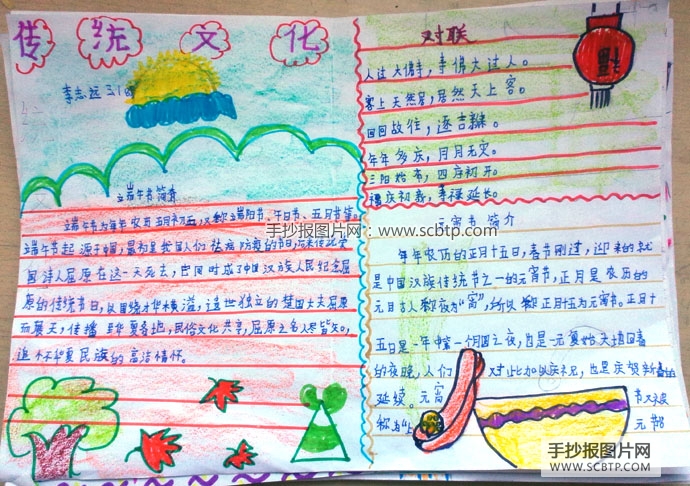 传统文化
李志远 三1
端午节 简介
端午节为每年农历五月初五,又称端阳节、午日节、五月节等。
端午节起源于中国,最初是我国人们祛病防疫的节日,
国诗人屈原在这一天死去,也同时成了中国汉族人民纪念屈
原的传统节日,以围绕才华横溢,遗世独立的楚国大夫屈原
而展开,传播华夏各地,民俗文化共享,屈原之名人尽皆知。
追怀华夏民族的高洁情怀。
对联
人过大佛寺,寺佛大过人。
客上天然居,居然天上客。
回回故往,逐吉
年年多庆,月月无灾。
三阳始布,四序初开。
禧庆初新,寿禄延长。
元宵节 简介
每年农历的正月十五日,春节刚过,迎来的就
是中国汉族传统节之一的元宵节,正月是农历的
元月古人称夜为“宵”,所以称正月十五为元宵节。正月十
五日是一年中第一个月圆之夜,也是一元复始大地回春
的夜晚,人们对此加以庆祝,也是庆贺新春的
延续。元宵节又被
称为“上元节”
手抄报图片网:www.scbtp.com
手抄报图片网
WWW.SCBTP.COM